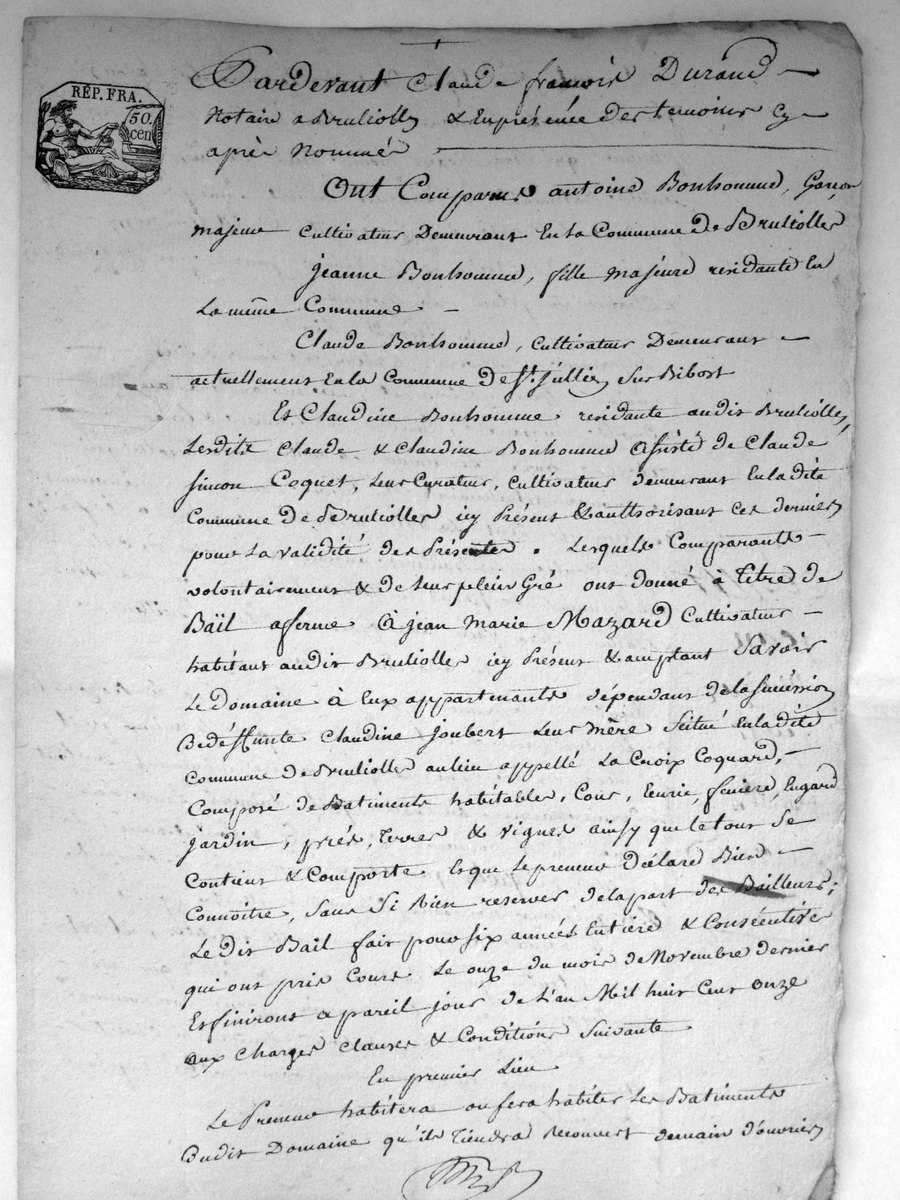 RÉP. FRA.
50.
cen
Pardevant Claude françois Durand
Notaire a Bruliolles & En présence des temoins cy
après Nommés
Ont Comparus antoine Bonhomme, Garçon
majeure Cultivateur Demeurant En la Commune de Bruliolles
jeanne Bonhomme, fille majeure residante En
La même Commune
Claude Bonhomme, Cultivateur Demeurant
actuellement En la Commune de St. jullien sur Bibost
Et Claudine Bonhomme residante audit Bruliolles,
Lesdits Claude & Claudine Bonhomme assisté de Claude
simon Coquet, Leur Curateur, Cultivateur demeurant En la dité
Commune de Bruliolles icy Présent & authorisant ces derniers
pour La validité des Présentes. Lesquels Comparants
volontairement & de leur plein Gré ont donné à titre de
Bäil a ferme à jean marie Mazard Cultivateur
habitant audit Bruliolles icy Présent & acceptant Savoir
Le Domaine à Eux appartenants dépendant de la succession
De déffunte Claudine joubert Leur mère Situé En la dité
Commune de Bruliolles au lieu appellé La Croix Coquard,
Composé de Batiments habitables, Cour, Ecurie, feniere, Engard
jardin, priés, terres & vignes ainsy que le tout se
Contient & Comporte Et que Le preneur déclare Bien
Connoître, Sans Si Rien reserver de la part des Bailleurs;
Le dit Bail fait pour six années Entière & Conséentive
qui ont pris Cours Le onze du mois de Novembre dernier
Et finiront a pareil jour de L'an Mil huit Cent onze
aux Charges Clauses & Conditions Suivante
En premier Lieu
Le Preneur habitera ou fera habiter Les Batiments
Dudit Domaine qu'il tiendra Recouvert de main d'ouvrier